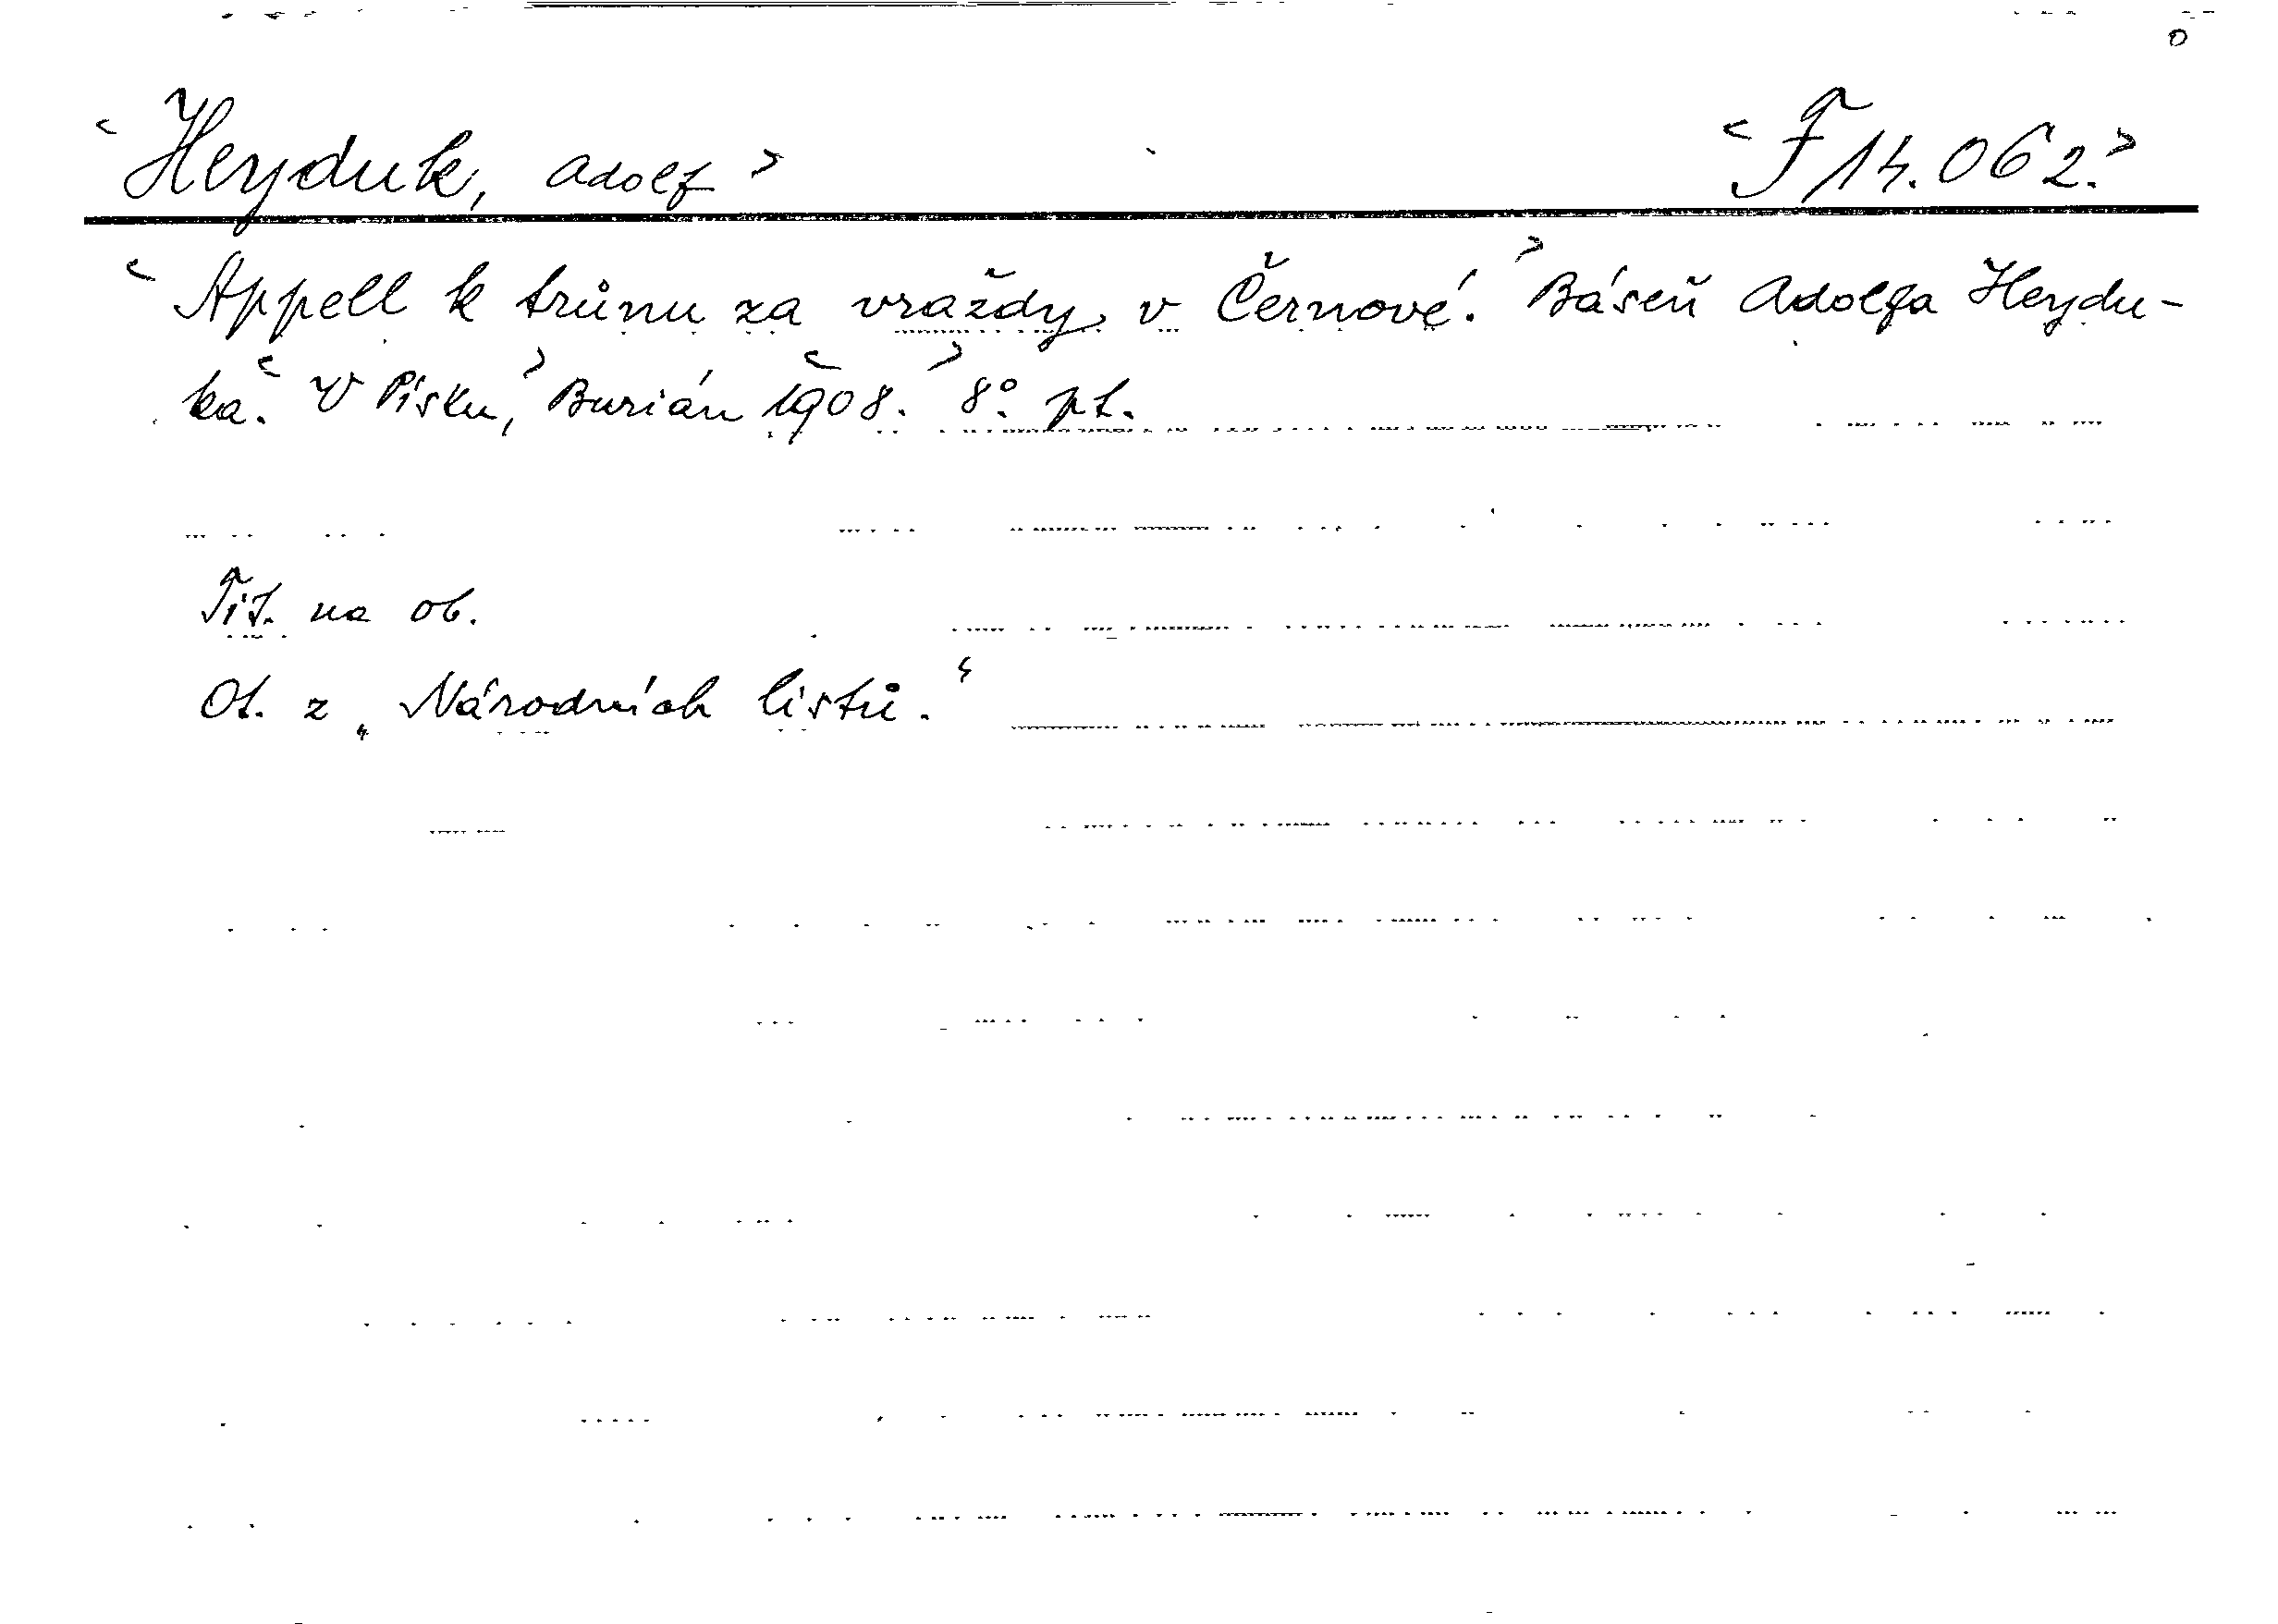 <Heyduk, Adolf> <F 14.062.>
<Appell k trůnu za vraždy v Černové.> Báseň Adolfa Heydu-
ka. <V Písku,> Burián <1908.> 8° pt.
Tit. na ob.
Ot. z „Národních listů.“